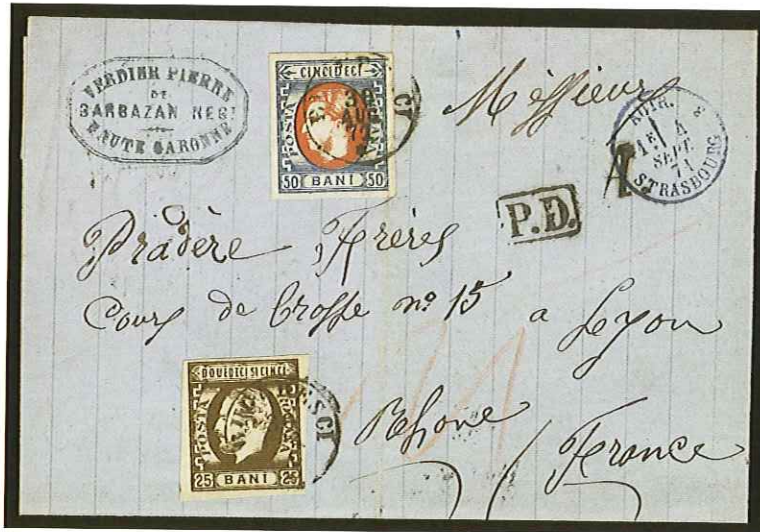 VERDIER PIERRE
DE
BARBAZAN NEGT
HAUTE GARONNE
CINCIDECI
POSTA
ROMANA
50 BANI 50
30
AU
71
CI
Messieurs
AUTR.
4
SEPT.
71
STRASBOURG
P.D.
Pradère Frères
Cours de Brosse nº 15 a Lyon
DOUEDECI SI CINCI
POSTA
ROMANA
25 BANI 25
Rhone
France